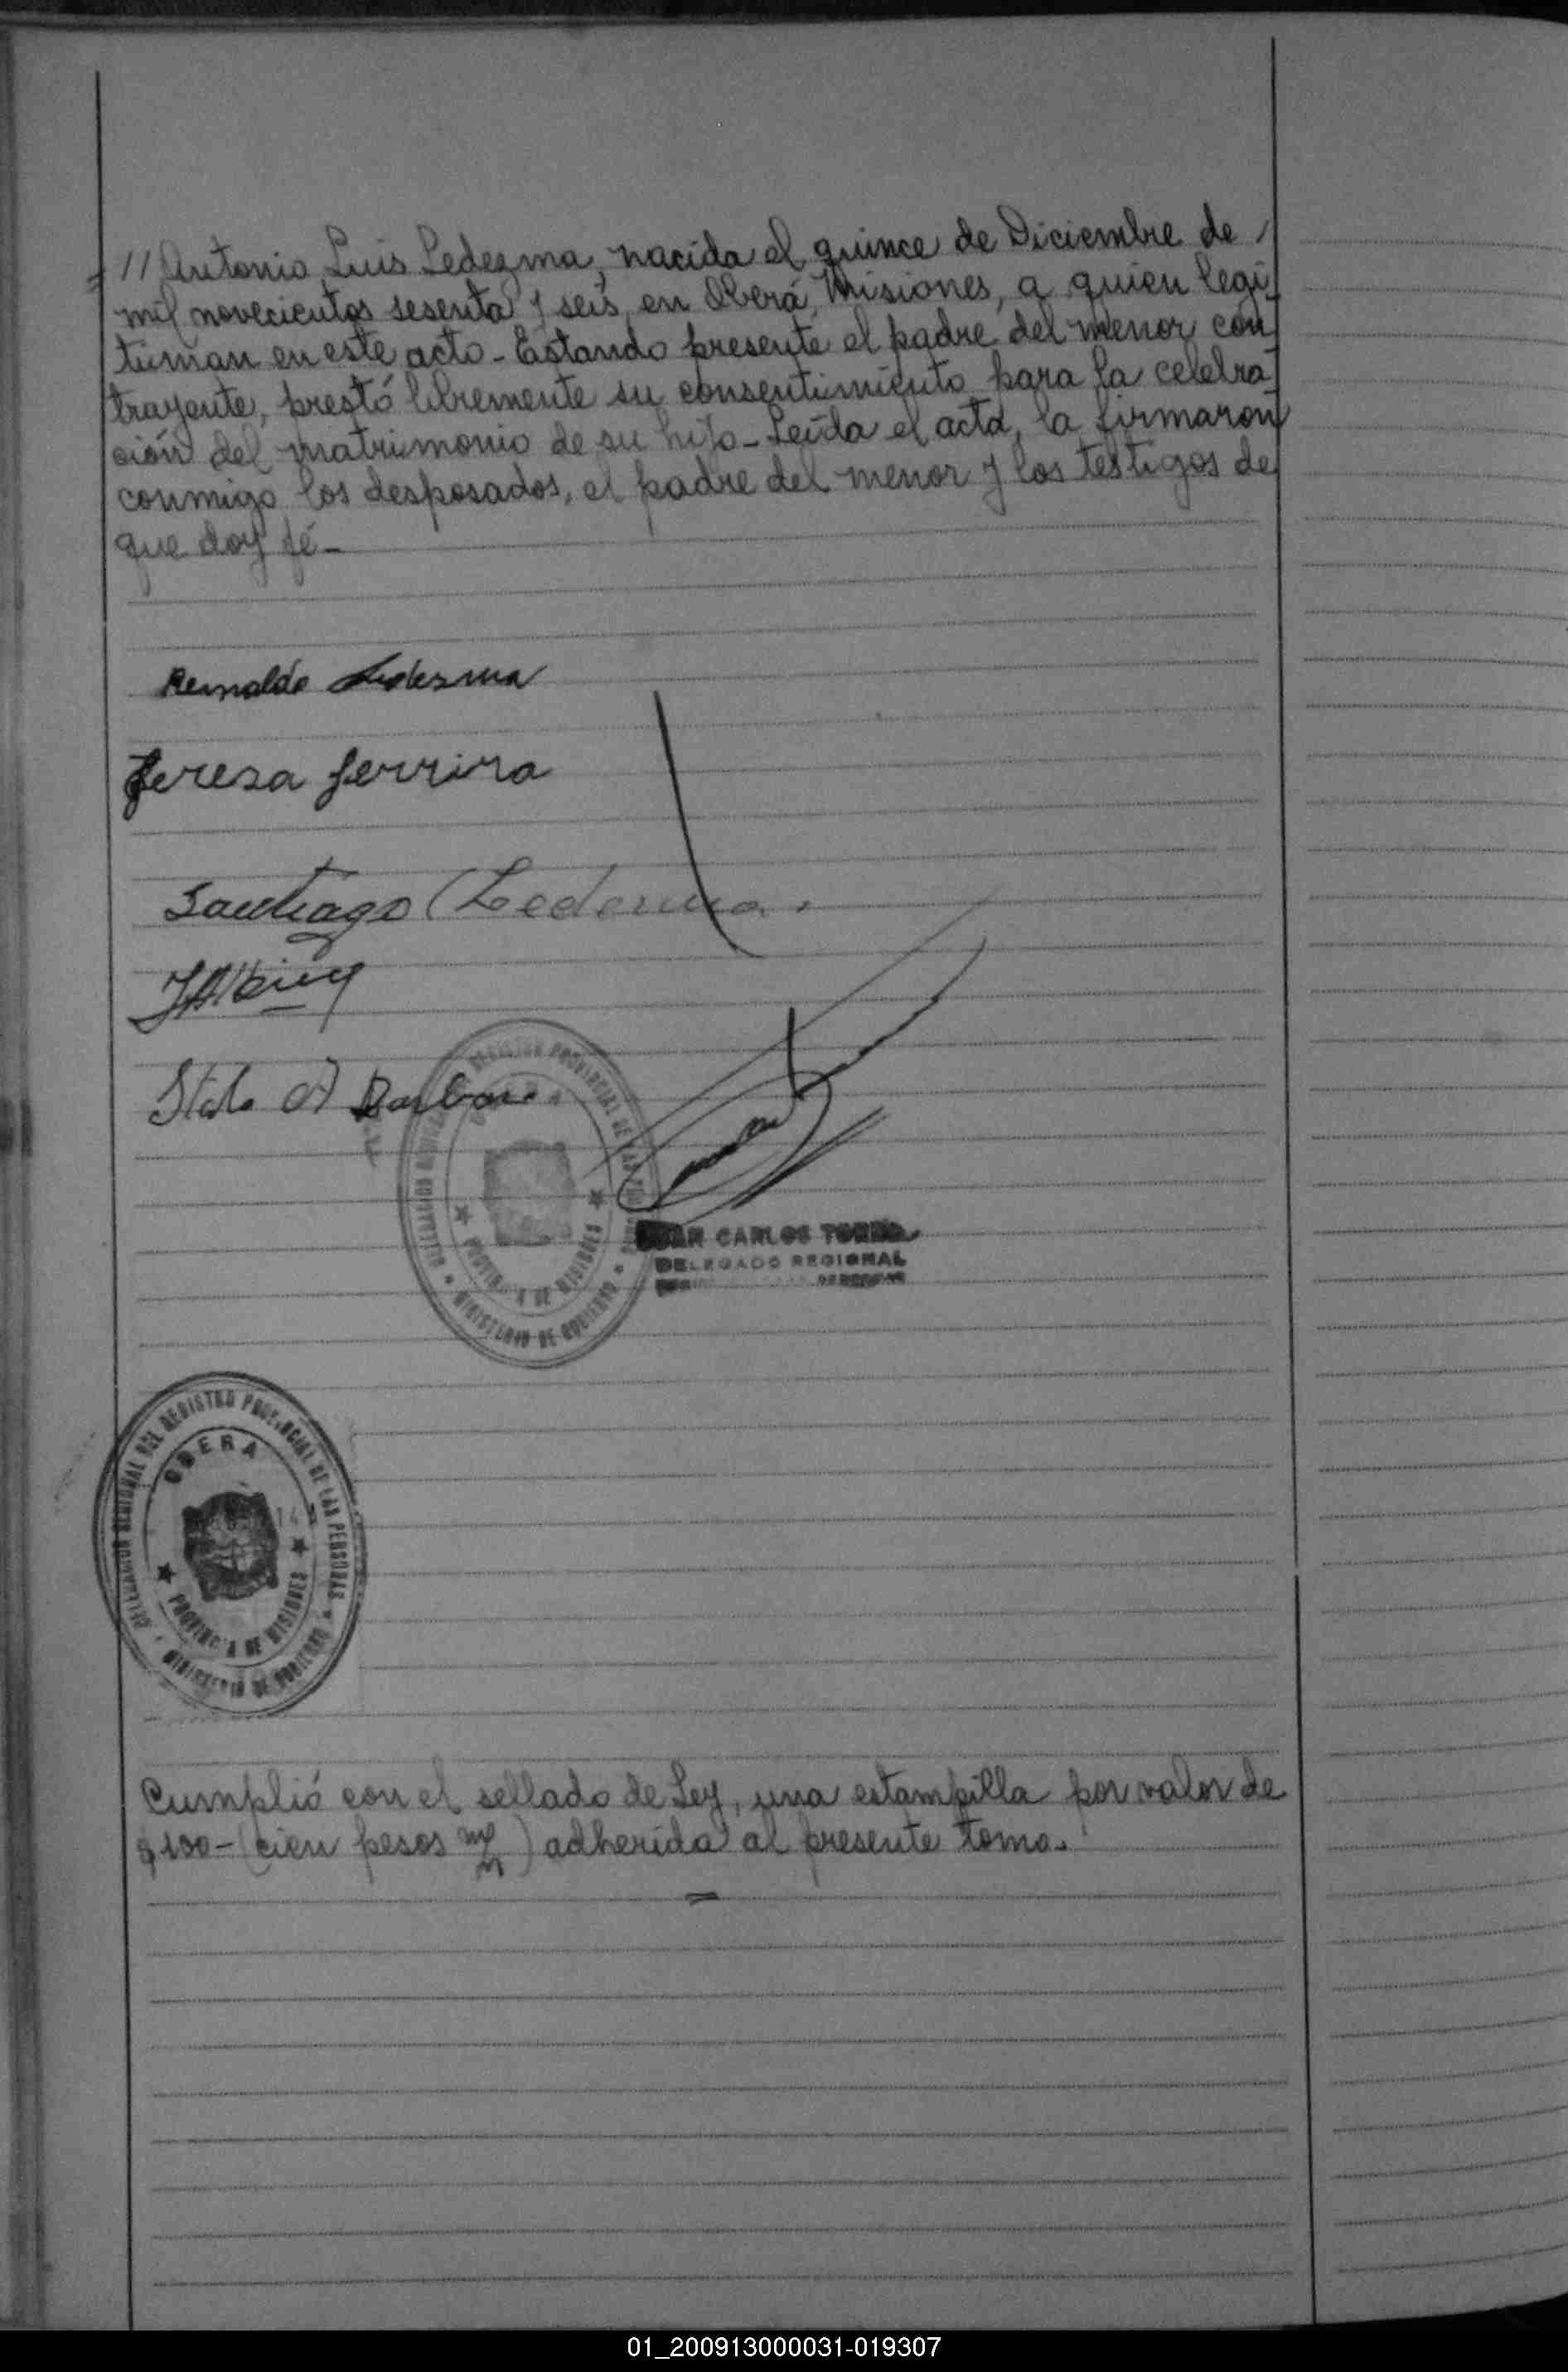 // Antonio Luis Ledezma, nacida el quince de Diciembre de /
mil novecientos sesenta y seis, en Oberá, Misiones, a quien legi-
timan en este acto - Estando presente el padre del menor con-
trayente, prestó libremente su consentimiento para la celebra-
ción del matrimonio de su hijo - Leída el acta, la firmaron
conmigo los desposados, el padre del menor y los testigos de
que doy fé -
Reinaldo Ledesma
Teresa Ferrira
Santiago Ledesma.
DELEGACION REGIONAL DEL REGISTRO PROVINCIAL DE LAS PERSONAS
PROVINCIA DE MISIONES
MINISTERIO DE GOBIERNO
JUAN CARLOS
DELEGADO REGIONAL
DELEGACION REGIONAL DEL REGISTRO PROVINCIAL DE LAS PERSONAS
OBERA
PROVINCIA DE MISIONES
MINISTERIO DE GOBIERNO
Cumplió con el sellado de Ley, una estampilla por valor de
$ 100 - (cien pesos m/n) adherida al presente tomo.
01_200913000031-019307